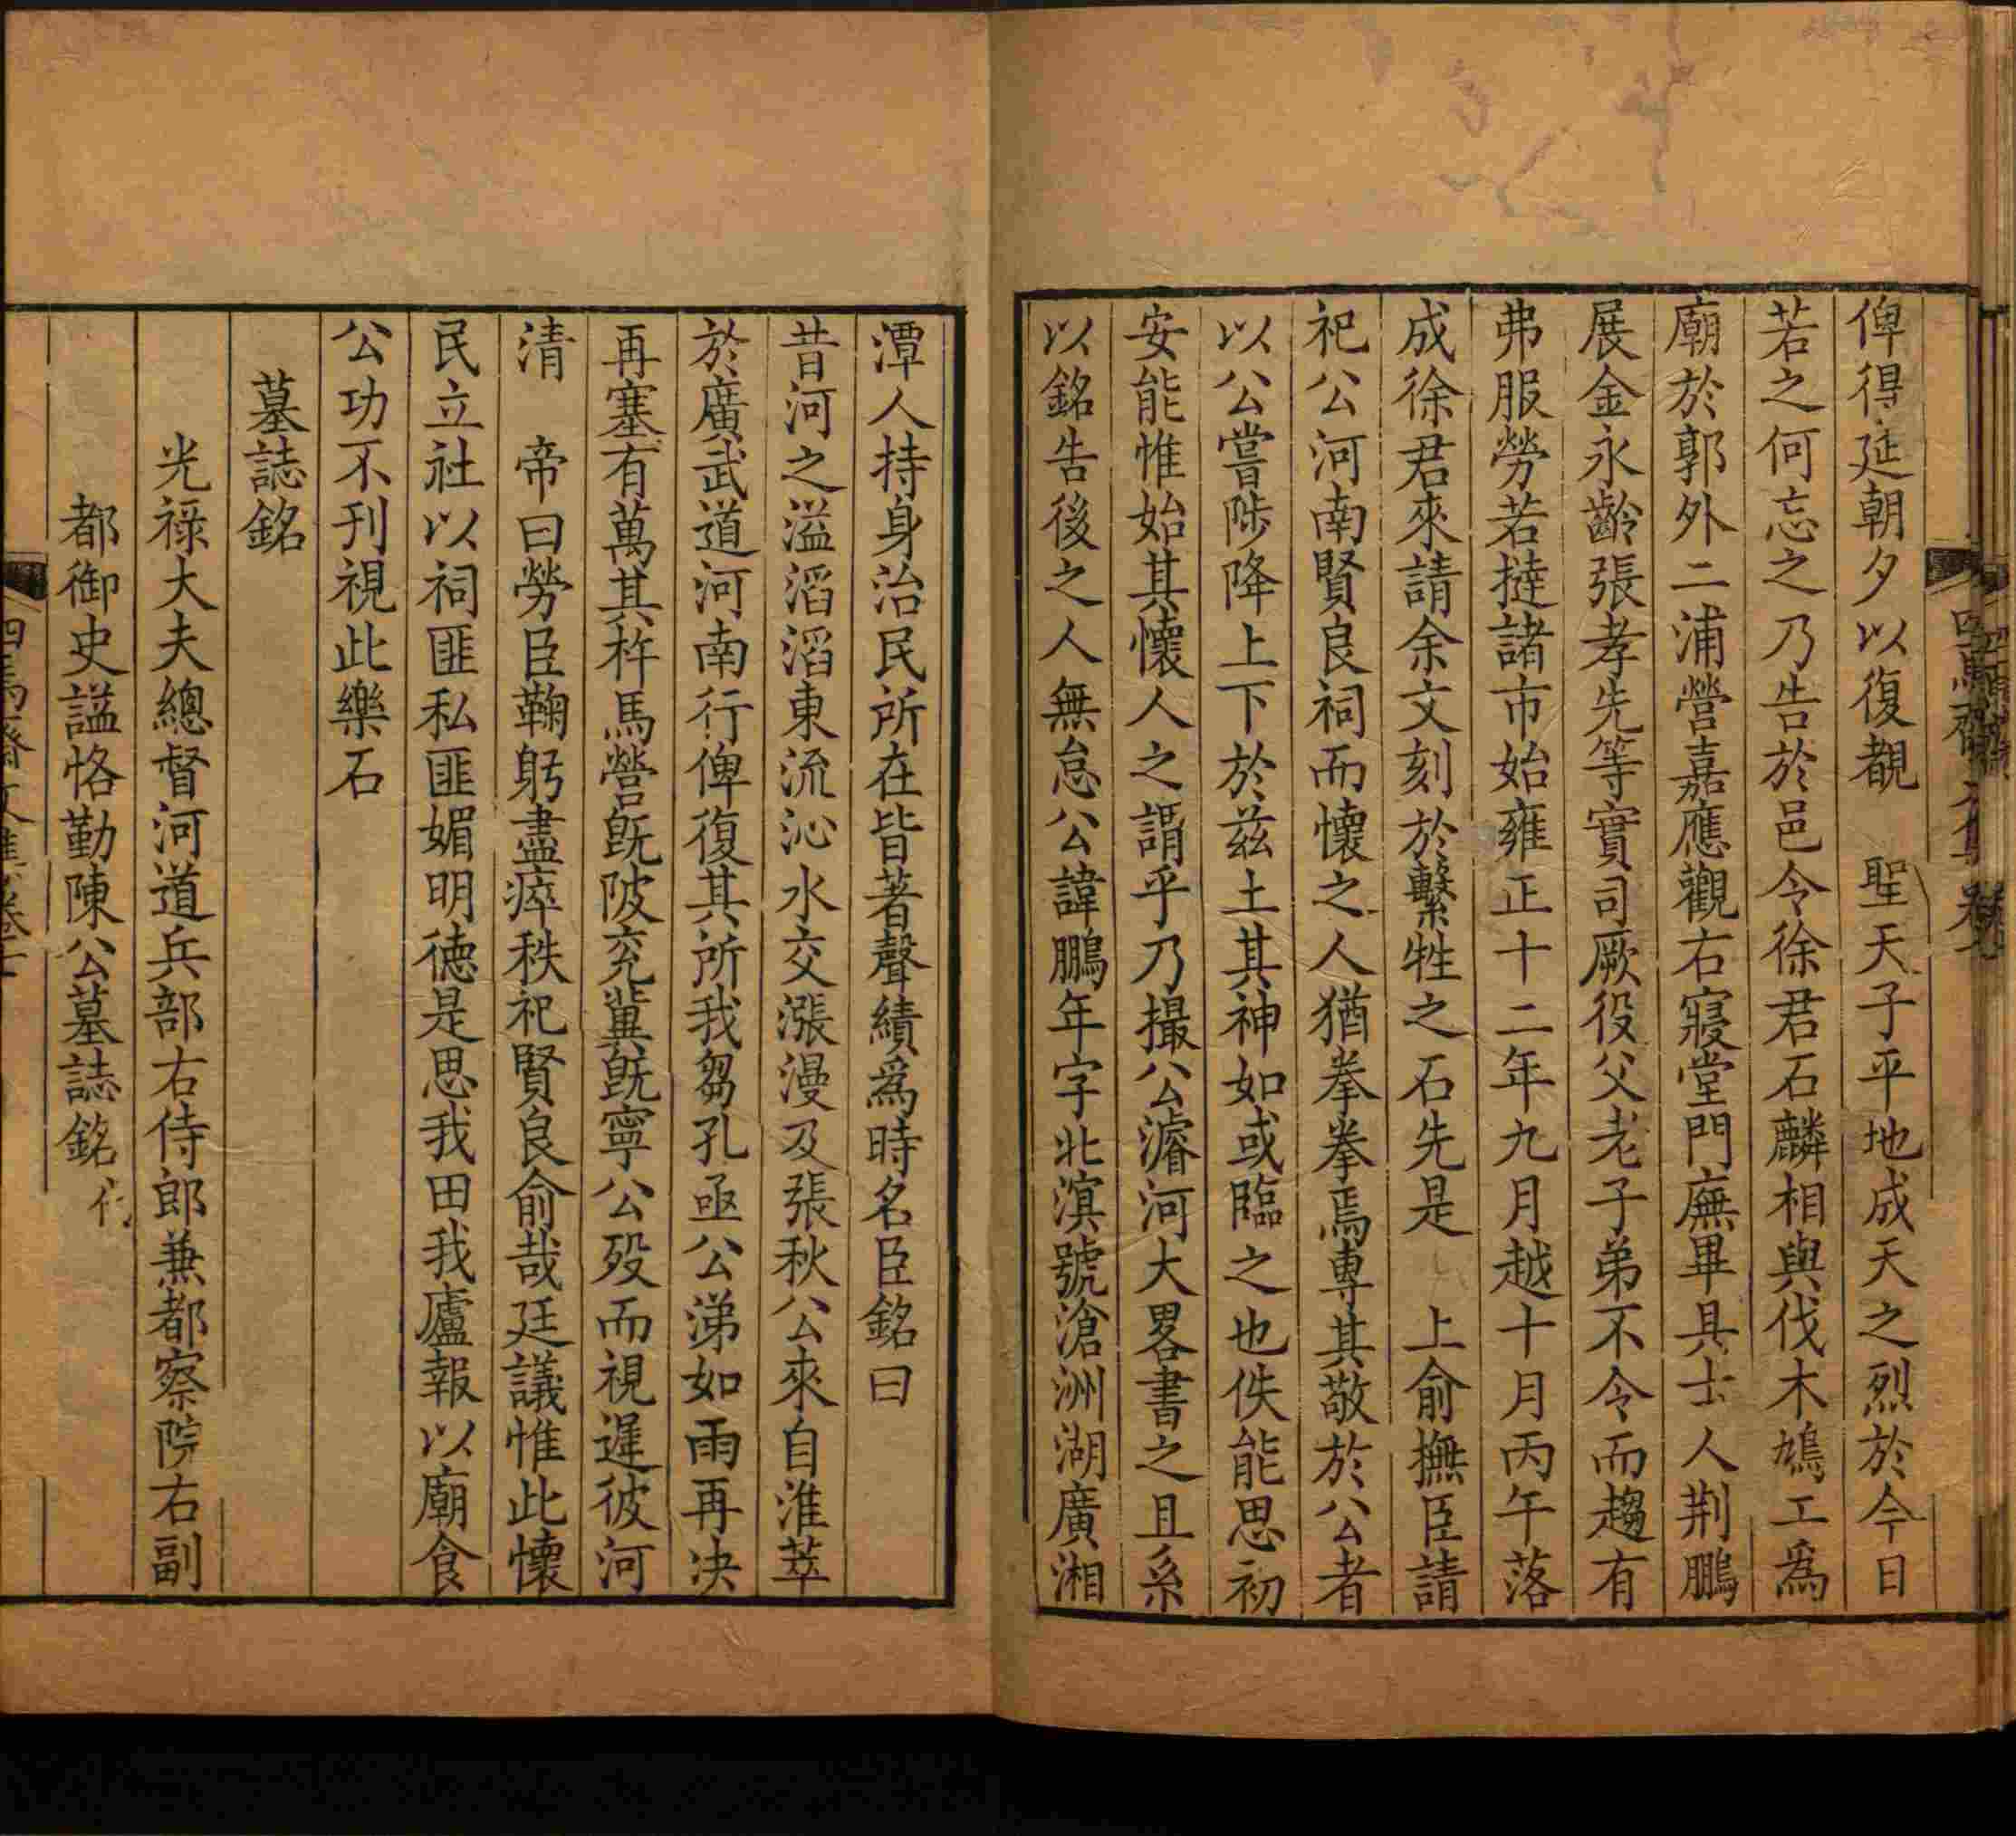 俾得延朝夕以復覩　聖天子平地成天之烈於今日
若之何忘之乃告於邑令徐君石麟相與伐木鳩工為
廟於郭外二浦營嘉應觀右寢堂門廡畢具士人荆鵬
展金永齡張孝先等實司厥役父老子弟不令而趨有
弗服勞若撻諸市始雍正十二年九月越十月丙午落
成徐君來請余文刻於繫牲之石先是　上俞撫臣請
祀公河南賢良祠而懷之人猶拳拳焉專其敬於公者
以公嘗陟降上下於兹土其神如或臨之也佚能思初
安能惟始其懷人之謂乎乃撮公濬河大畧書之且系
以銘告後之人無怠公諱鵬年字北溟號滄洲湖廣湘
潭人持身治民所在皆著聲績為時名臣銘曰
昔河之溢滔滔東流沁水交漲漫及張秋公來自淮萃
於廣武道河南行俾復其所我芻孔亟公涕如雨再决
再塞有萬其杵馬營旣陂兖冀旣寧公殁而視遲彼河
清　帝曰勞臣鞠躬盡瘁秩祀賢良俞哉廷議惟此懷
民立社以祠匪私匪媚明德是思我田我廬報以廟食
公功不刊視此樂石
墓誌銘
光祿大夫總督河道兵部右侍郎兼都察院右副
都御史謚恪勤陳公墓誌銘代